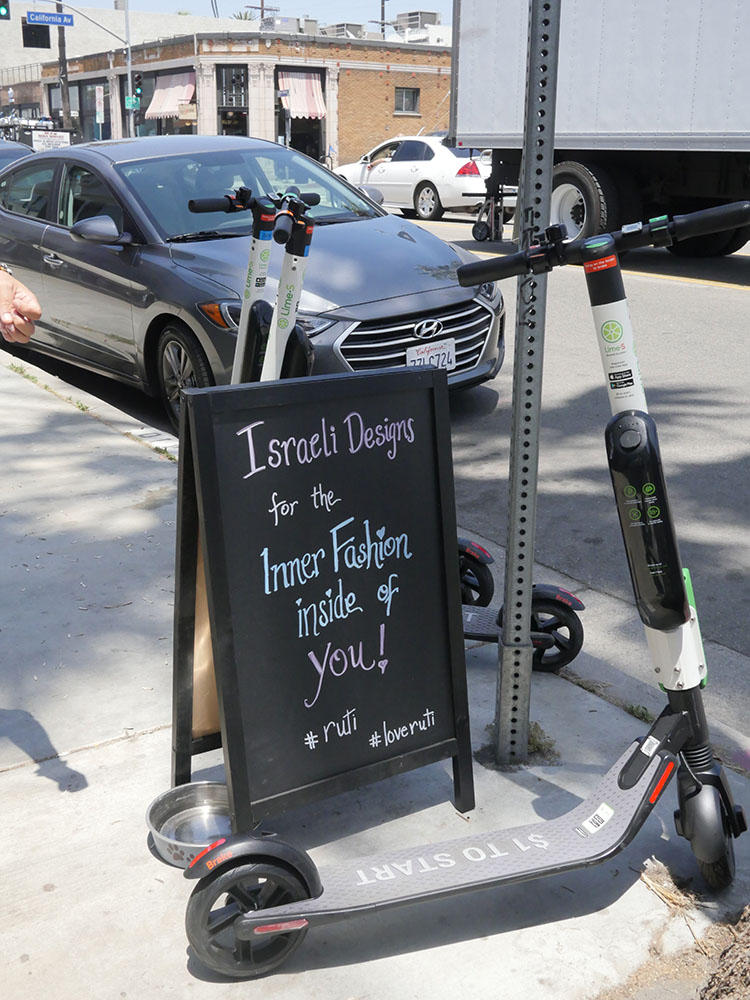 California Av
Israeli Designs
for the
Inner Fashion
inside of
you!
#ruti #loveruti
Lime-S
Lime-S
Lime-S
California
$1 TO START
Brake